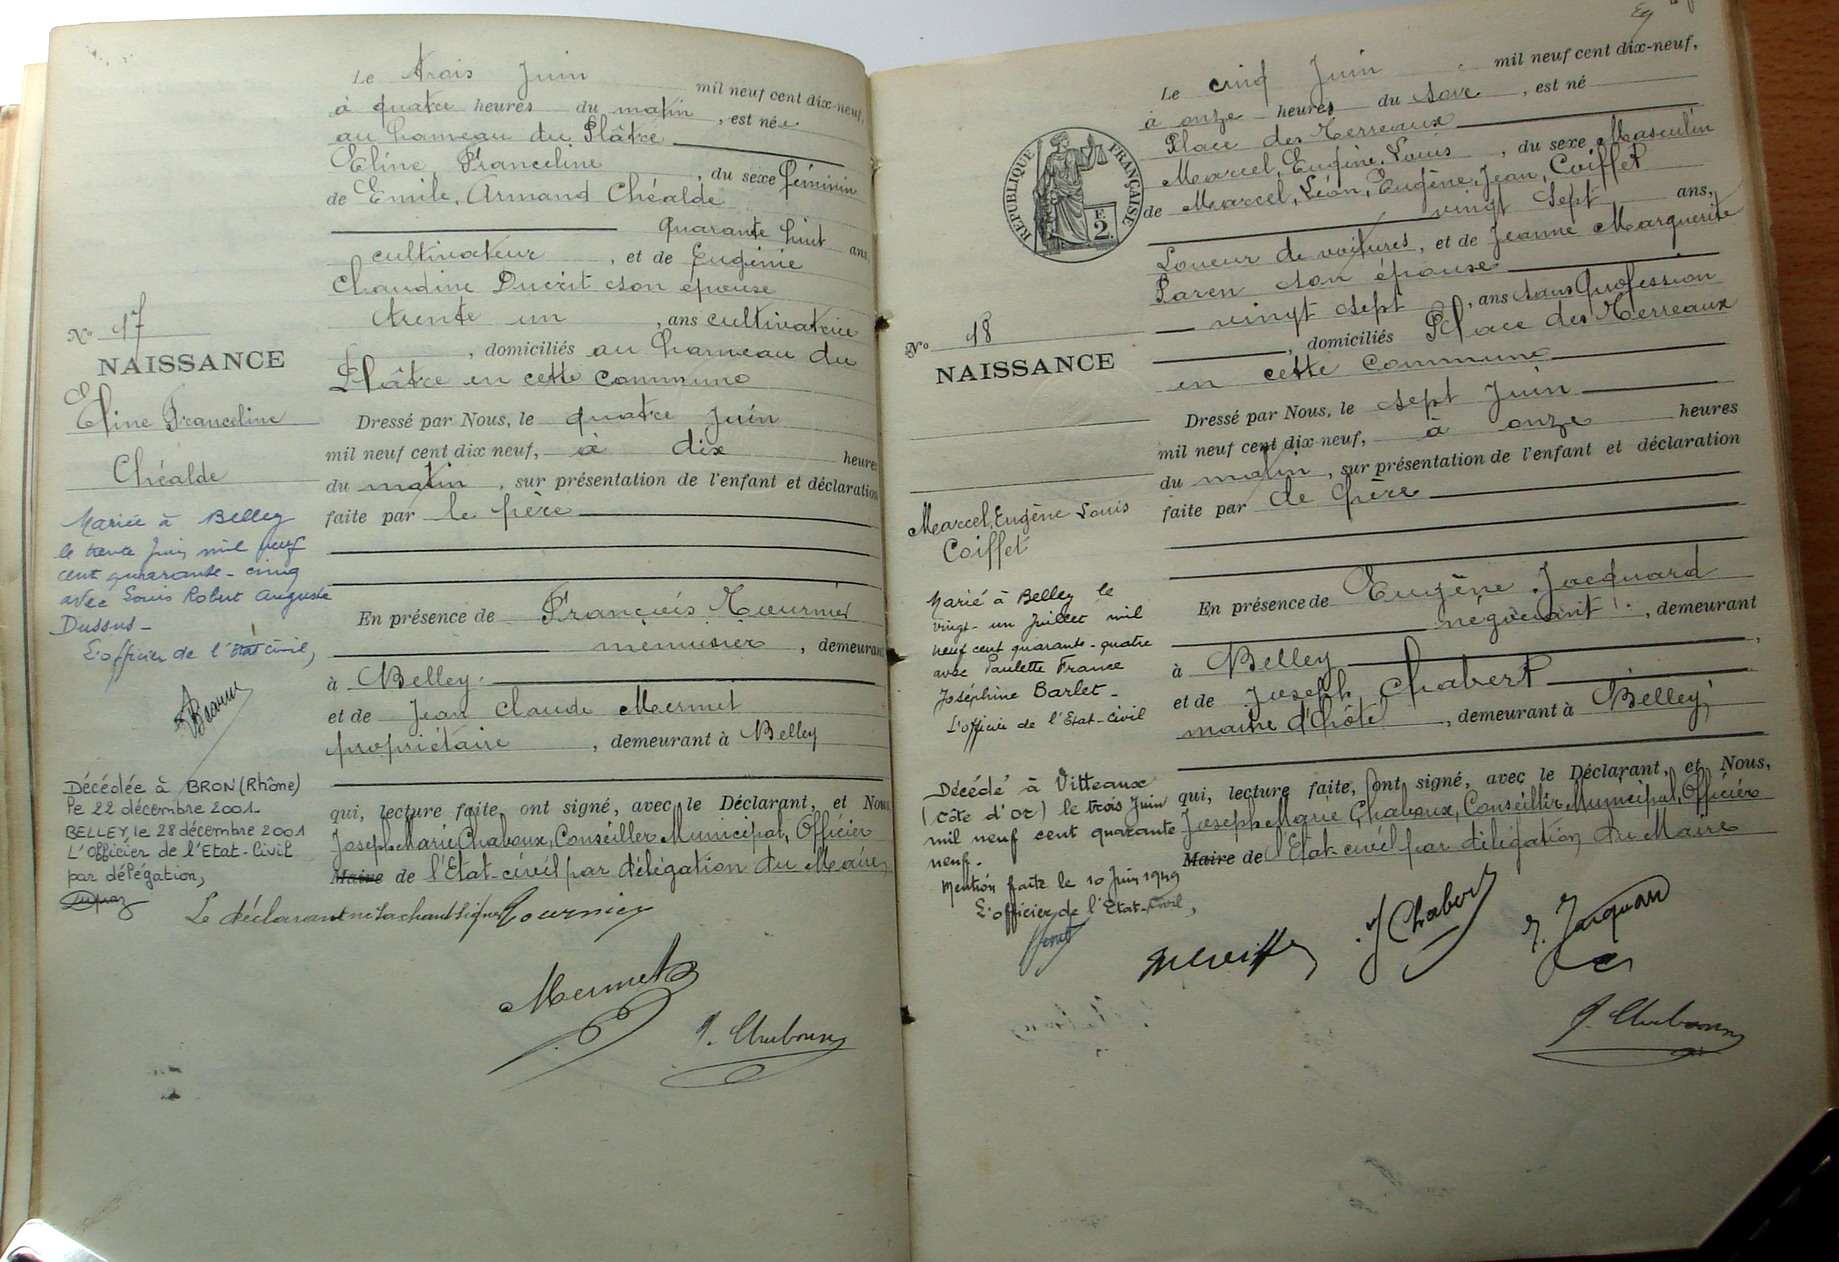 Le trois Juin mil neuf cent dix-neuf,
à quatre heures du matin, est née
au hameau du Plâtre
Eline Franceline, du sexe féminin
de Emile, Armand Chéalde
quarante huit ans,
cultivateur, et de Eugénie
Claudine Ducrit son épouse
trente un, ans cultivatrice
, domiciliés au hameau du
Plâtre en cette commune
Dressé par Nous, le quatre Juin
mil neuf cent dix neuf, à dix heures
du matin, sur présentation de l'enfant et déclaration
faite par le père
En présence de François Tournier
menuisier, demeurant
à Belley.
et de Jean Claude Mermet
propriétaire, demeurant à Belley
qui, lecture faite, ont signé, avec le Déclarant, et Nous
Joseph Marie Chaboux, Conseiller Municipal, Officier
Maire de l'Etat-civil par délégation du Maire,
Le déclarant ne sachant signer Tournier
Mermet
J. Chaboux
No 17
NAISSANCE
Eline Franceline
Chéalde
Mariée à Belley
le trente Juin mil neuf
cent quarante-cinq
avec Louis Robert Auguste
Dussus-
L'officier de l'Etat civil,
Décédée à BRON (Rhône)
le 22 décembre 2001.
BELLEY, le 28 décembre 2001
L'Officier de l'Etat-Civil
par délégation,
Le cinq Juin mil neuf cent dix-neuf,
à onze heures du soir, est né
Place des Terreaux
Marcel, Eugène, Louis, du sexe Masculin
de Marcel, Léon, Eugène, Jean, Coiffet
vingt sept ans,
Loueur de voitures, et de Jeanne Marguerite
Paren son épouse
vingt sept, ans sans profession
, domiciliés Place des Terreaux
en cette commune
Dressé par Nous, le sept Juin
mil neuf cent dix-neuf, à onze heures
du matin, sur présentation de l'enfant et déclaration
faite par le père
En présence de Eugène Jacquard
négociant, demeurant
à Belley,
et de Joseph Chabert
maitre d'hôtel, demeurant à Belley,
qui, lecture faite, ont signé, avec le Déclarant, et Nous,
Joseph Marie Chaboux, Conseiller Municipal, Officier
Maire de l'Etat-civil par délégation du Maire
J Chabert
J. Jacquard
J. Chaboux
REPUBLIQUE FRANÇAISE
E
2
No 18
NAISSANCE
Marcel, Eugène Louis
Coiffet
Marié à Belley le
vingt-un Juillet mil
neuf cent quarante-quatre
avec Paulette France
Joséphine Barlet-
L'officier de l'Etat-civil
Décédé à Vitteaux
(Côte d'or) le trois Juin
mil neuf cent quarante
neuf.
Mention faite le 10 Juin 1949
L'officier de l'Etat-Civil,